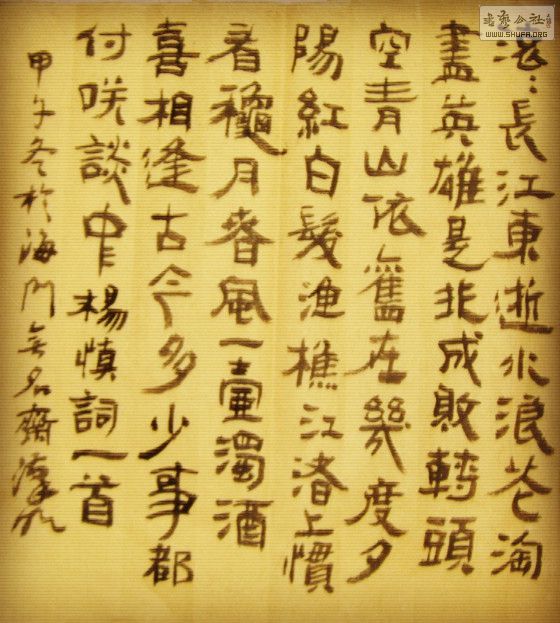 滚〻長江東逝水浪花淘
盡英雄是非成敗轉頭
空青山依舊在幾度夕
陽紅白髮漁樵江渚上慣
看穐月春風一壺濁酒
喜相逢古今多少事都
付咲談中楊慎詞一首
甲午冬於海門無名齋
WWW.SHUFA.ORG